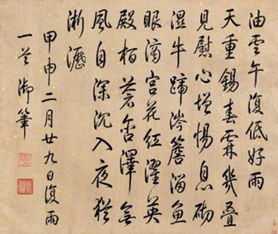 油雲午復低好雨
天重錫春霖幾疊
見慰心增惕息砌
濕牛蹄涔簷溜魚
眼滴宮花紅濯英
殿柏蒼含澤無
風自深沉入夜猶
淅瀝
甲申二月廿九日復雨
一首 御筆